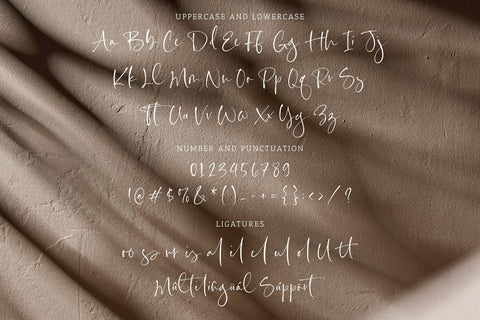 UPPERCASE AND LOWERCASE
Aa Bb Cc Dd Ee Ff Gg Hh Ii Jj
Kk Ll Mm Nn Oo Pp Qq Rr Ss
Tt Uu Vv Ww Xx Yy Zz
NUMBER AND PUNCTUATION
0123456789
!@#$%&*()_-+={}:;<>/?
LIGATURES
ro ss rr is al il el ul ol ll tt
Multilingual Support